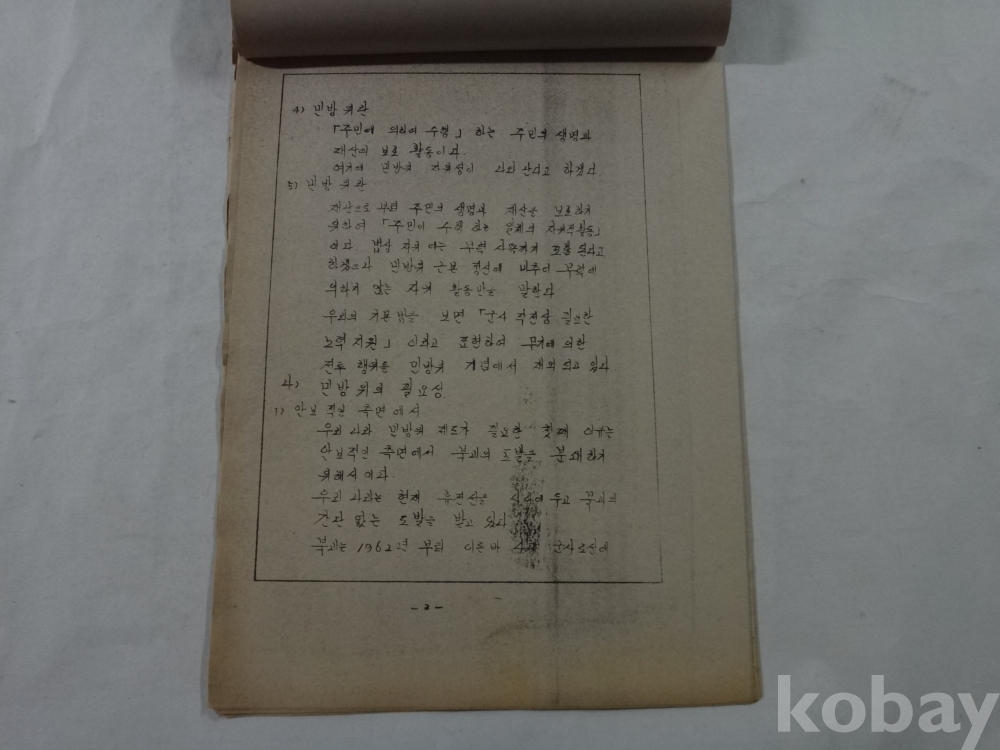 4) 민방위란
「주민에 의하여 수행」 하는 주민의 생명과
재산의 보호 활동이다.
여기에 민방위 자위성이 나타 난다고 하겠다
5) 민방위란
재산으로 부터 주민의 생명과 재산을 보호하기
위하여 「주민이 수행 하는 일체의 자위적활동」
이다. 법상 자위 에는 무력 사용까지 포함 된다고
하겠으나 민방위 근본 정신에 비추어 무력에
의하지 않는 자위 활동만을 말한다
우리의 기본법을 보면 「군사 작전상 필요한
노력지원」 이라고 표현하여 무기에 의한
전투 행위를 민방위 개념에서 제외 되고 있다
나) 민방위의 필요성
1) 안보적인 측면에서
우리 나라 민방위 제도가 필요한 첫째 이유는
안보적인 측면에서 북괴의 도발을 분쇄하기
위해서이다
우리 나라는 현재 휴전선을 두고 북괴의
간단 없는 도발을 받고 있다
북괴는 1962년 부터 이른바 4대 군사노선에
- 2 -
kobay